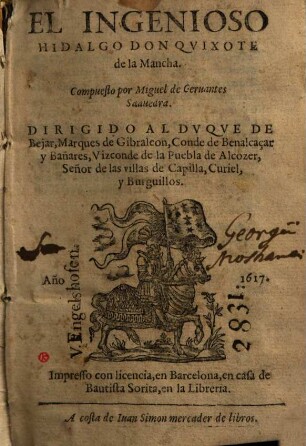 EL INGENIOSO
HIDALGO DON QVIXOTE
de la Mancha.
Compuesto por Miguel de Ceruantes
Saauedra.
DIRIGIDO AL DVQVE DE
Bejar, Marques de Gibraleon, Conde de Benalcaçar
y Bañares, Vizconde de la Puebla de Alcozer,
Señor de las villas de Capilla, Curiel,
y Burguillos.
Georgii
Año 1617.
V. Engelshofen.
2831.
Impresso con licencia, en Barcelona, en casa de
Bautista Sorita, en la Libreria.
A costa de Iuan Simon mercader de libros.